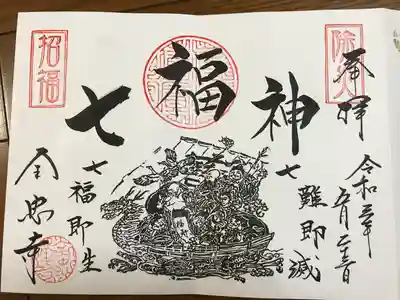 奉拝
令和年
五月
除災
七福神
招福
七難即滅
七福即生
全忠寺